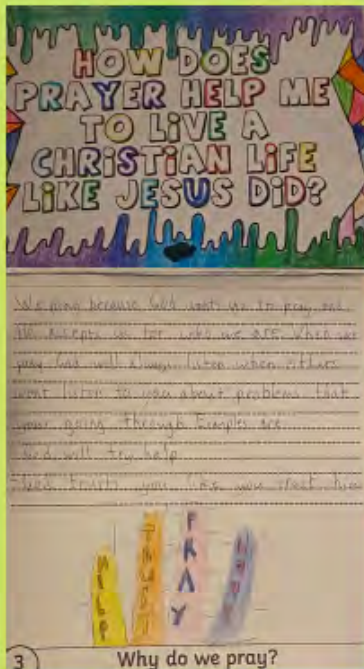 HOW DOES
PRAYER HELP ME
TO LIVE A
CHRISTIAN LIFE
LIKE JESUS DID?
We pray because God wants us to pray and
He accepts us for who we are. When we
pray God will always listen when others
wont listen to you about problems that
your going through Examples are
God will try help
God trusts you like you trust him
HELP
TRUST
PRAY
3
Why do we pray?